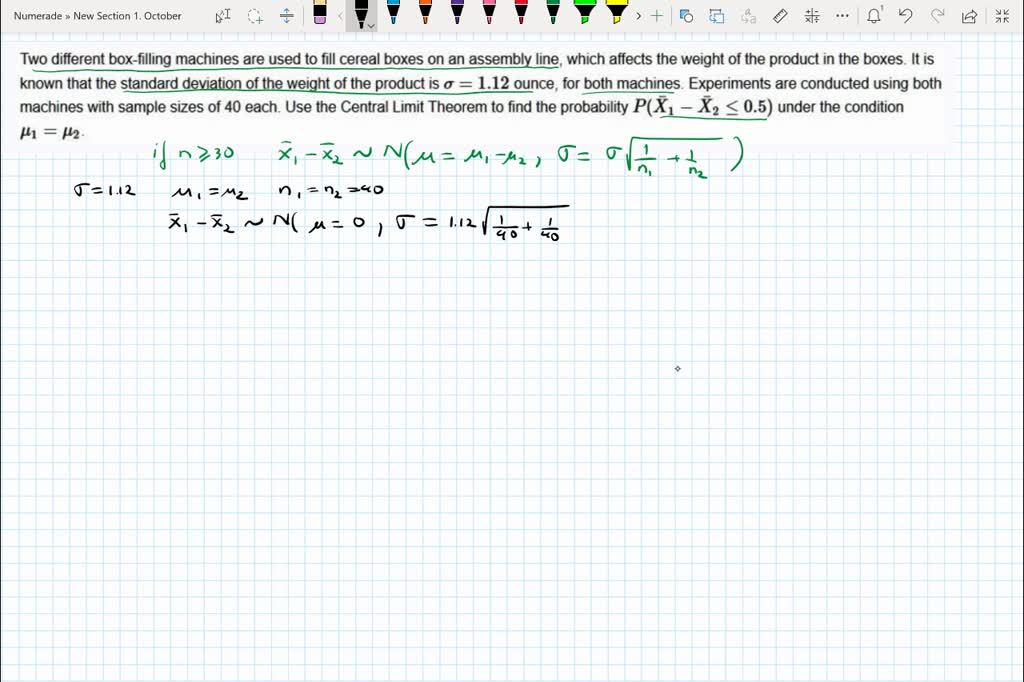 Numerade » New Section 1. October
Two different box-filling machines are used to fill cereal boxes on an assembly line, which affects the weight of the product in the boxes. It is
known that the standard deviation of the weight of the product is σ = 1.12 ounce, for both machines. Experiments are conducted using both
machines with sample sizes of 40 each. Use the Central Limit Theorem to find the probability P(X̄₁ − X̄₂ ≤ 0.5) under the condition
μ₁ = μ₂.
if n ≥ 30 x̄₁ − x̄₂ ~ N(μ = μ₁ − μ₂, σ = σ√(1/n₁ + 1/n₂))
σ = 1.12 μ₁ = μ₂ n₁ = n₂ = 40
x̄₁ − x̄₂ ~ N( μ = 0, σ = 1.12 √(1/40 + 1/40)